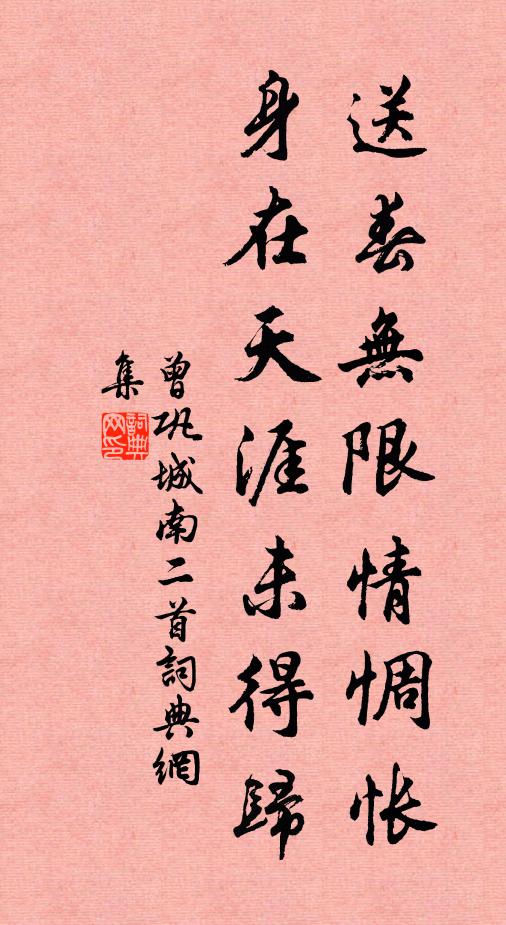 送春無限情惆悵
身在天涯未得歸
曾巩城南二首詞典網
集
詞典
网印